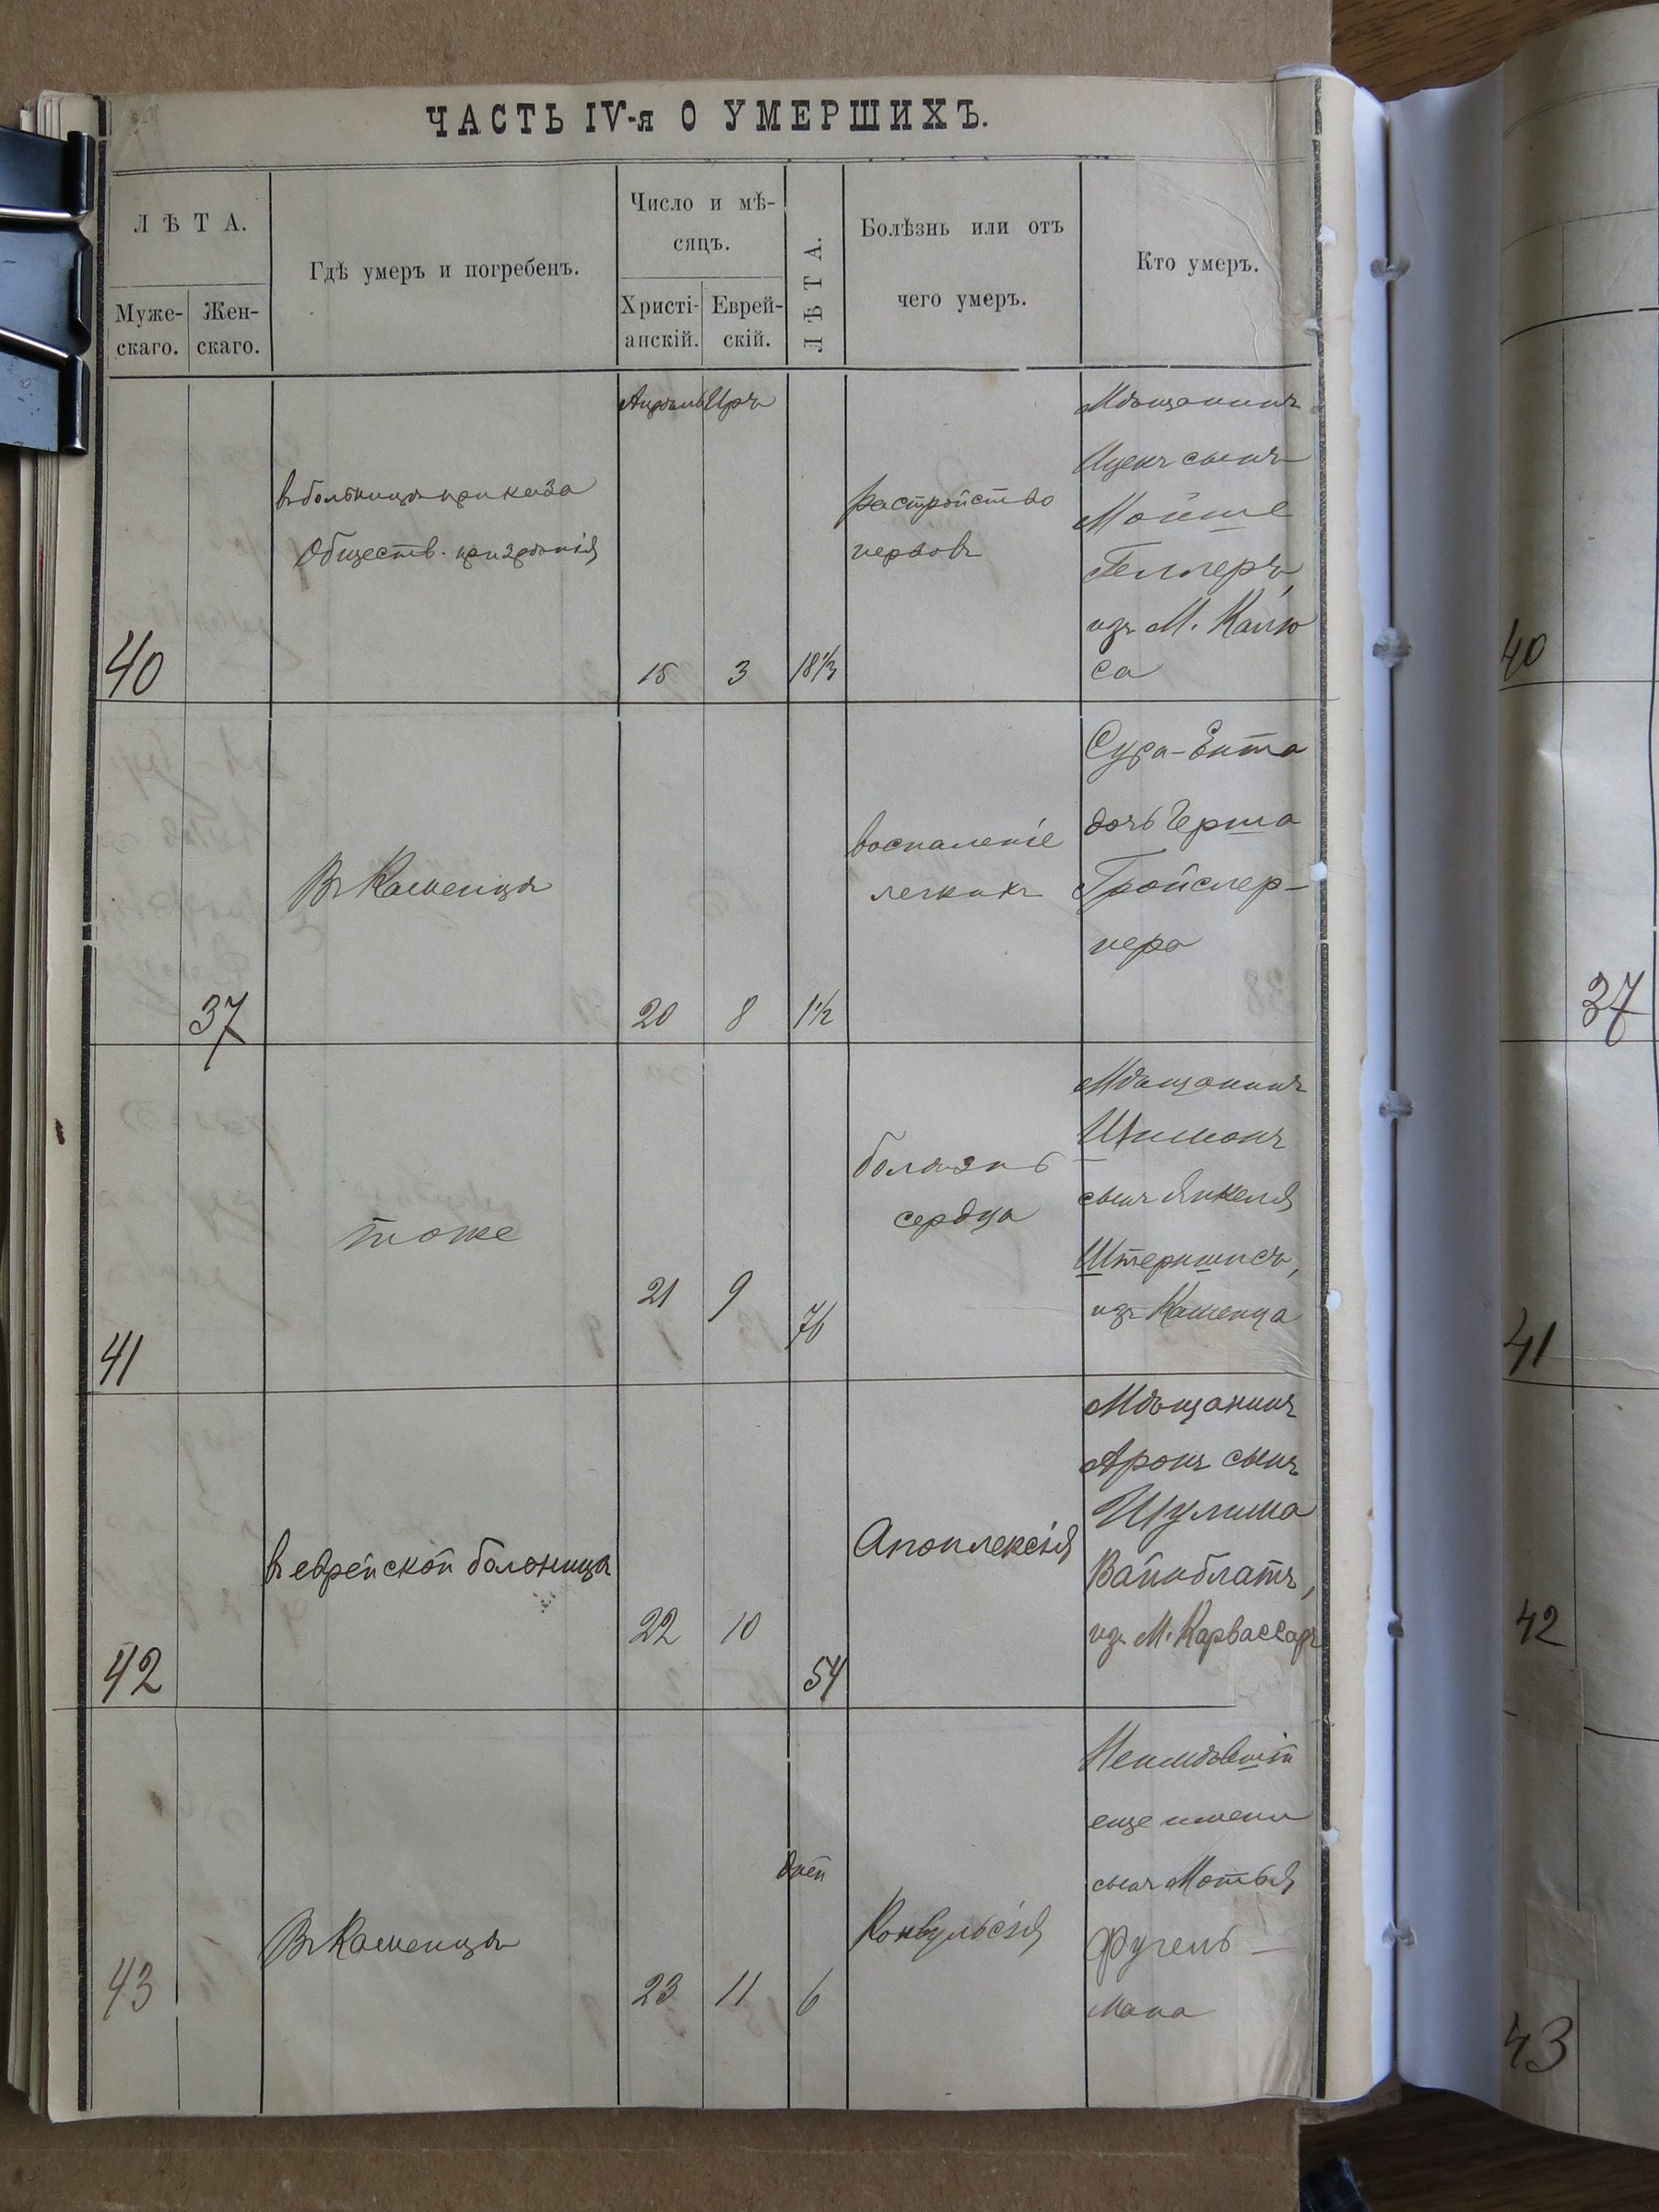 ЧАСТЬ IV-я О УМЕРШИХЪ.
ЛѢТА.
Муже-
скаго.
Жен-
скаго.
Гдѣ умеръ и погребенъ.
Число и мѣ-
сяцъ.
Христі-
анскій.
Еврей-
скій.
ЛѢТА.
Болѣзнь или отъ
чего умеръ.
Кто умеръ.
Апрѣль Иръ
40
въ больницѣ приказа
Обществ. призрѣнія
15
3
18 1/3
растройство
нервовъ
Мѣщанинъ
Ицекъ сынъ
Мойше
Геллеръ,
изъ М. Калю
са
40
37
Въ Каменцѣ
20
8
1 1/2
воспаленіе
легкихъ
Сура-Ента
дочь Герша
Гройслер-
нера
37
41
тоже
21
9
76
болѣзнь
сердца
Мѣщанинъ
Шимонъ
сынъ Янкеля
изъ Каменца
41
42
въ еврейской больницѣ
22
10
54
Апоплексія
Мѣщанинъ
Аронъ сынъ
Шулима
Вайнблатъ,
изъ М. Карвассаръ
42
43
Въ Каменцѣ
23
11
дней
6
Конвульсія
Неимѣвшій
еще имени
сынъ Мотья
Фугель-
мана
43